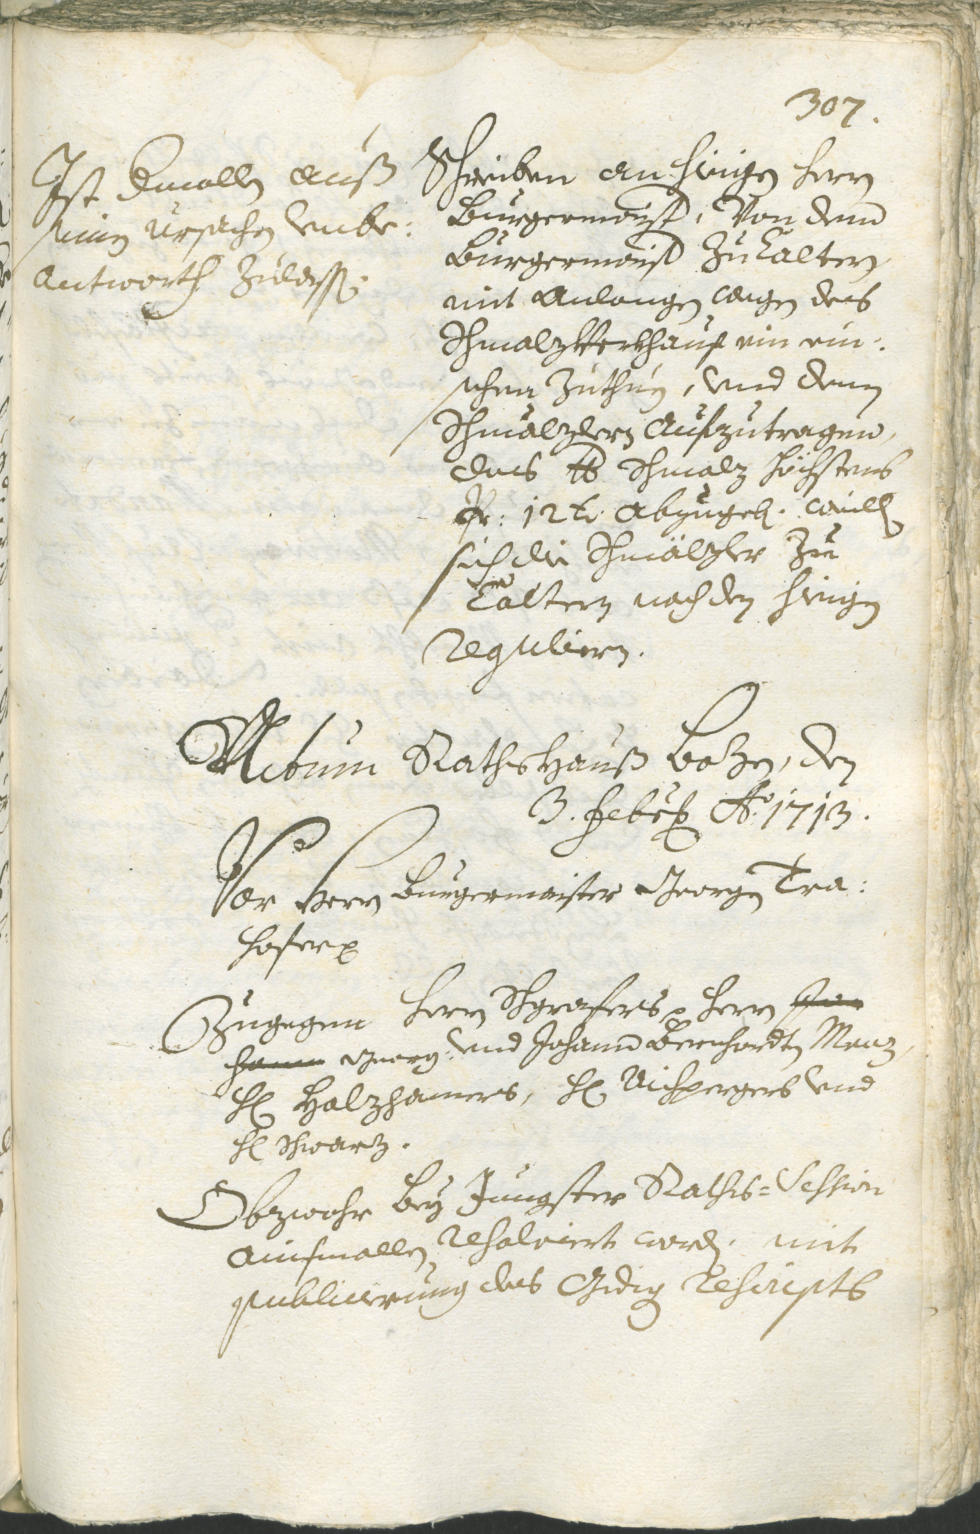 307.
Ist dimallen auß
seinen ursachen unbe:
antworth zulassen.
Schreiben an hieigen herrn
Burgermaister, Von dem
Burgermaister zu Caltern,
mit Anlangen wegen des
Schmalz Verkhauf ein ein:
sehen zuthuen, und denen
Schmälzlern Aufzutragen,
das lb Schmalz höchstens
Pr: 12 kr: abzugeben. weillen
sich die Schmälzler zu
Caltern nach den hieigen
regulieren.
Actum Rathshauß Bozen, den
3. Febr. Ao. 1713.
Vor Herrn Burgermaister Georgen Tra:
hofer
Zugegen Herrn Schgrafers, Herrn
Georg: und Johann Bernhardten Menz,
H. Holzhamers, H. Aichpergers und
H. Schwarz.
Obzwohr bey Jüngster Raths-Session
ainsmallen resolviert worden. mit
publicierung des Gndig Rescripts